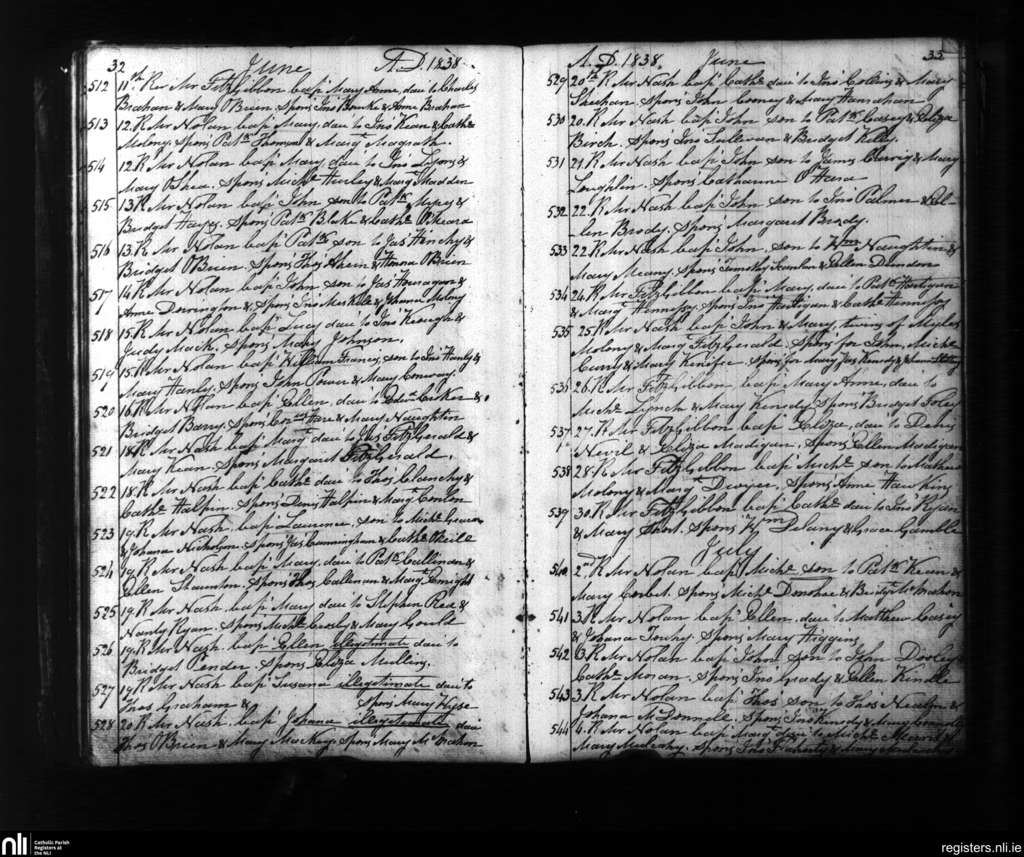 32 June A.D. 1838
512 11th Rev Mr FitzGibbon bap Mary Anne, dau to Charles
Brahan & Mary O'Brien Spons Jno Bourke & Anne Brahan
513 12. R. Mr Nolan bap Mary, dau to Jno Kean & Cathe
Molony, Spons Patk Thomson & Margt Magrath.
514 12 R Mr Nolan bap Mary dau to Jno Lyons &
Mary O'Shea. Spons Michl Hurley & Margt Madden
515 13 R Mr Nolan bap John son to Patk &
Bridget Hayes. Spons Patk Blake & Cathe O'Meara
516 13. R. Mr Nolan bap Patk son to Jas Hinchy &
Bridget O'Brien Spons Thos Ahern & Honora O'Brien
517 14. R Mr Nolan bap John son to Jas &
Anne Dorrington & Spons Jno & Molony
518 15. R. Mr Nolan bap Lucy dau to Jno Keough &
Judy Mack. Spons Mary Johnson.
519 15 R Mr Nolan bap William Francis, son to Jno Hanly &
Mary Hanly. Spons John Power & Mary Conway.
520 16. R. Mr Nolan bap Ellen, dau to &
Bridget Barry, Spons Hare & Mary Naughtin
521 18. R Mr Nash bap Margt dau to Jas FitzGerald &
Mary Kean. Spons Margaret FitzGerald.
522 18. R. Mr Nash bap Cathe dau to Thos Clanchy &
Cathe Halpin. Spons Denis Halpin & Margt Conlon
523 19. R Mr Nash. bap Laurence, son to Michl
& Johana Nicholson. Spons Jas Cunningham & Cathe O'Neile
524 19. R Mr Nash bap Mary, dau to Patk Callinan &
Ellen Staunton. Spons Thos Callinan & Margt Enright
525 19. R Mr Nash bap Mary dau to Stephen Rea &
Nanly Ryan. Spons Michl & Mary Goult
526 19. R. Mr Nash bap Ellen illegitimate dau to
Bridget Pender. Spons Eliza Mullins.
527 19 R Mr Nash bap Susana illegitimate dau to
Thos Graham & Spons Mary Wyse
528 20. R. Mr Nash. bap Johana illegitimate dau
Thos O'Brien & Mary MacKey. Spons Mary McMahon
A.D. 1838. June 33
529 20th R Mr Nash bap Cathe dau to Jno Collins & Mary
Sheehan. Spons John Cooney & Mary Hanrahan
530 20. R. Mr Nash bap John son to Patk Casey & Eliza
Birch. Spons Jno Sullivan & Bridget Kelly.
531 21 R. Mr Nash bap John son to James & Mary
Loughlin. Spons Catharine O'Hara
532 22. R. Mr Nash bap John son to Jno Palmer & El-
len Brody. Spons Margaret Brody.
533 22. R Mr Nash bap John, son to Wm Naughtin &
Mary Meany. Spons Timothy Scanlan & Ellen Dundon
534 24. R Mr FitzGibbon bap Mary, dau to Patk Hartigan
& Margt Hennessy Spons Jno Hartigan & Cathe Hennessy
535 25 R Mr Nash bap John & Mary, twins of Myles
Molony & Mary FitzGerald. Spons for John, Michl
Curry & Mary Kinsse. Spons for Mary Jas Kenedy &
536 26. R. Mr FitzGibbon bap Mary Anne, dau to
Michl Lynch & Mary Kenedy Spons Bridget Foley
537 27. R Mr FitzGibbon bap Eliza, dau to Denis
Nevil & Eliza Madigan, Spons Ellen Madigan
538 28. R Mr FitzGibbon bap Michl son to Mathew
Molony & Margt Dwyer. Spons Anne Hawkins
539 30. R. Mr FitzGibbon bap Cathe dau to Jno Ryan
& Mary Short. Spons Wm Delany & Grace Gamble
July
540 2nd R Mr Nolan bap Michl son to Patk Kean &
Mary Corbet. Spons Michl Donohoe & Bridgt McMahon
541 3. R Mr Nolan bap Ellen, dau to Matthew Casey
& Johana Towny. Spons Mary Higgins
542 3. R Mr Nolan bap John son to John Dooley &
Cathe Moran. Spons Jno Grady & Ellen Kindle
543 3. R Mr Nolan bap Thos son to Thos Nealyn &
Johana McDonnell. Spons Jno Kenedy & Mary
544 4. R Mr Nolan bap Mary dau to Michl &
Mary Mulcahy. Spons Jno Flaherty & Mary
nli Catholic Parish
Registers at
the NLI
registers.nli.ie